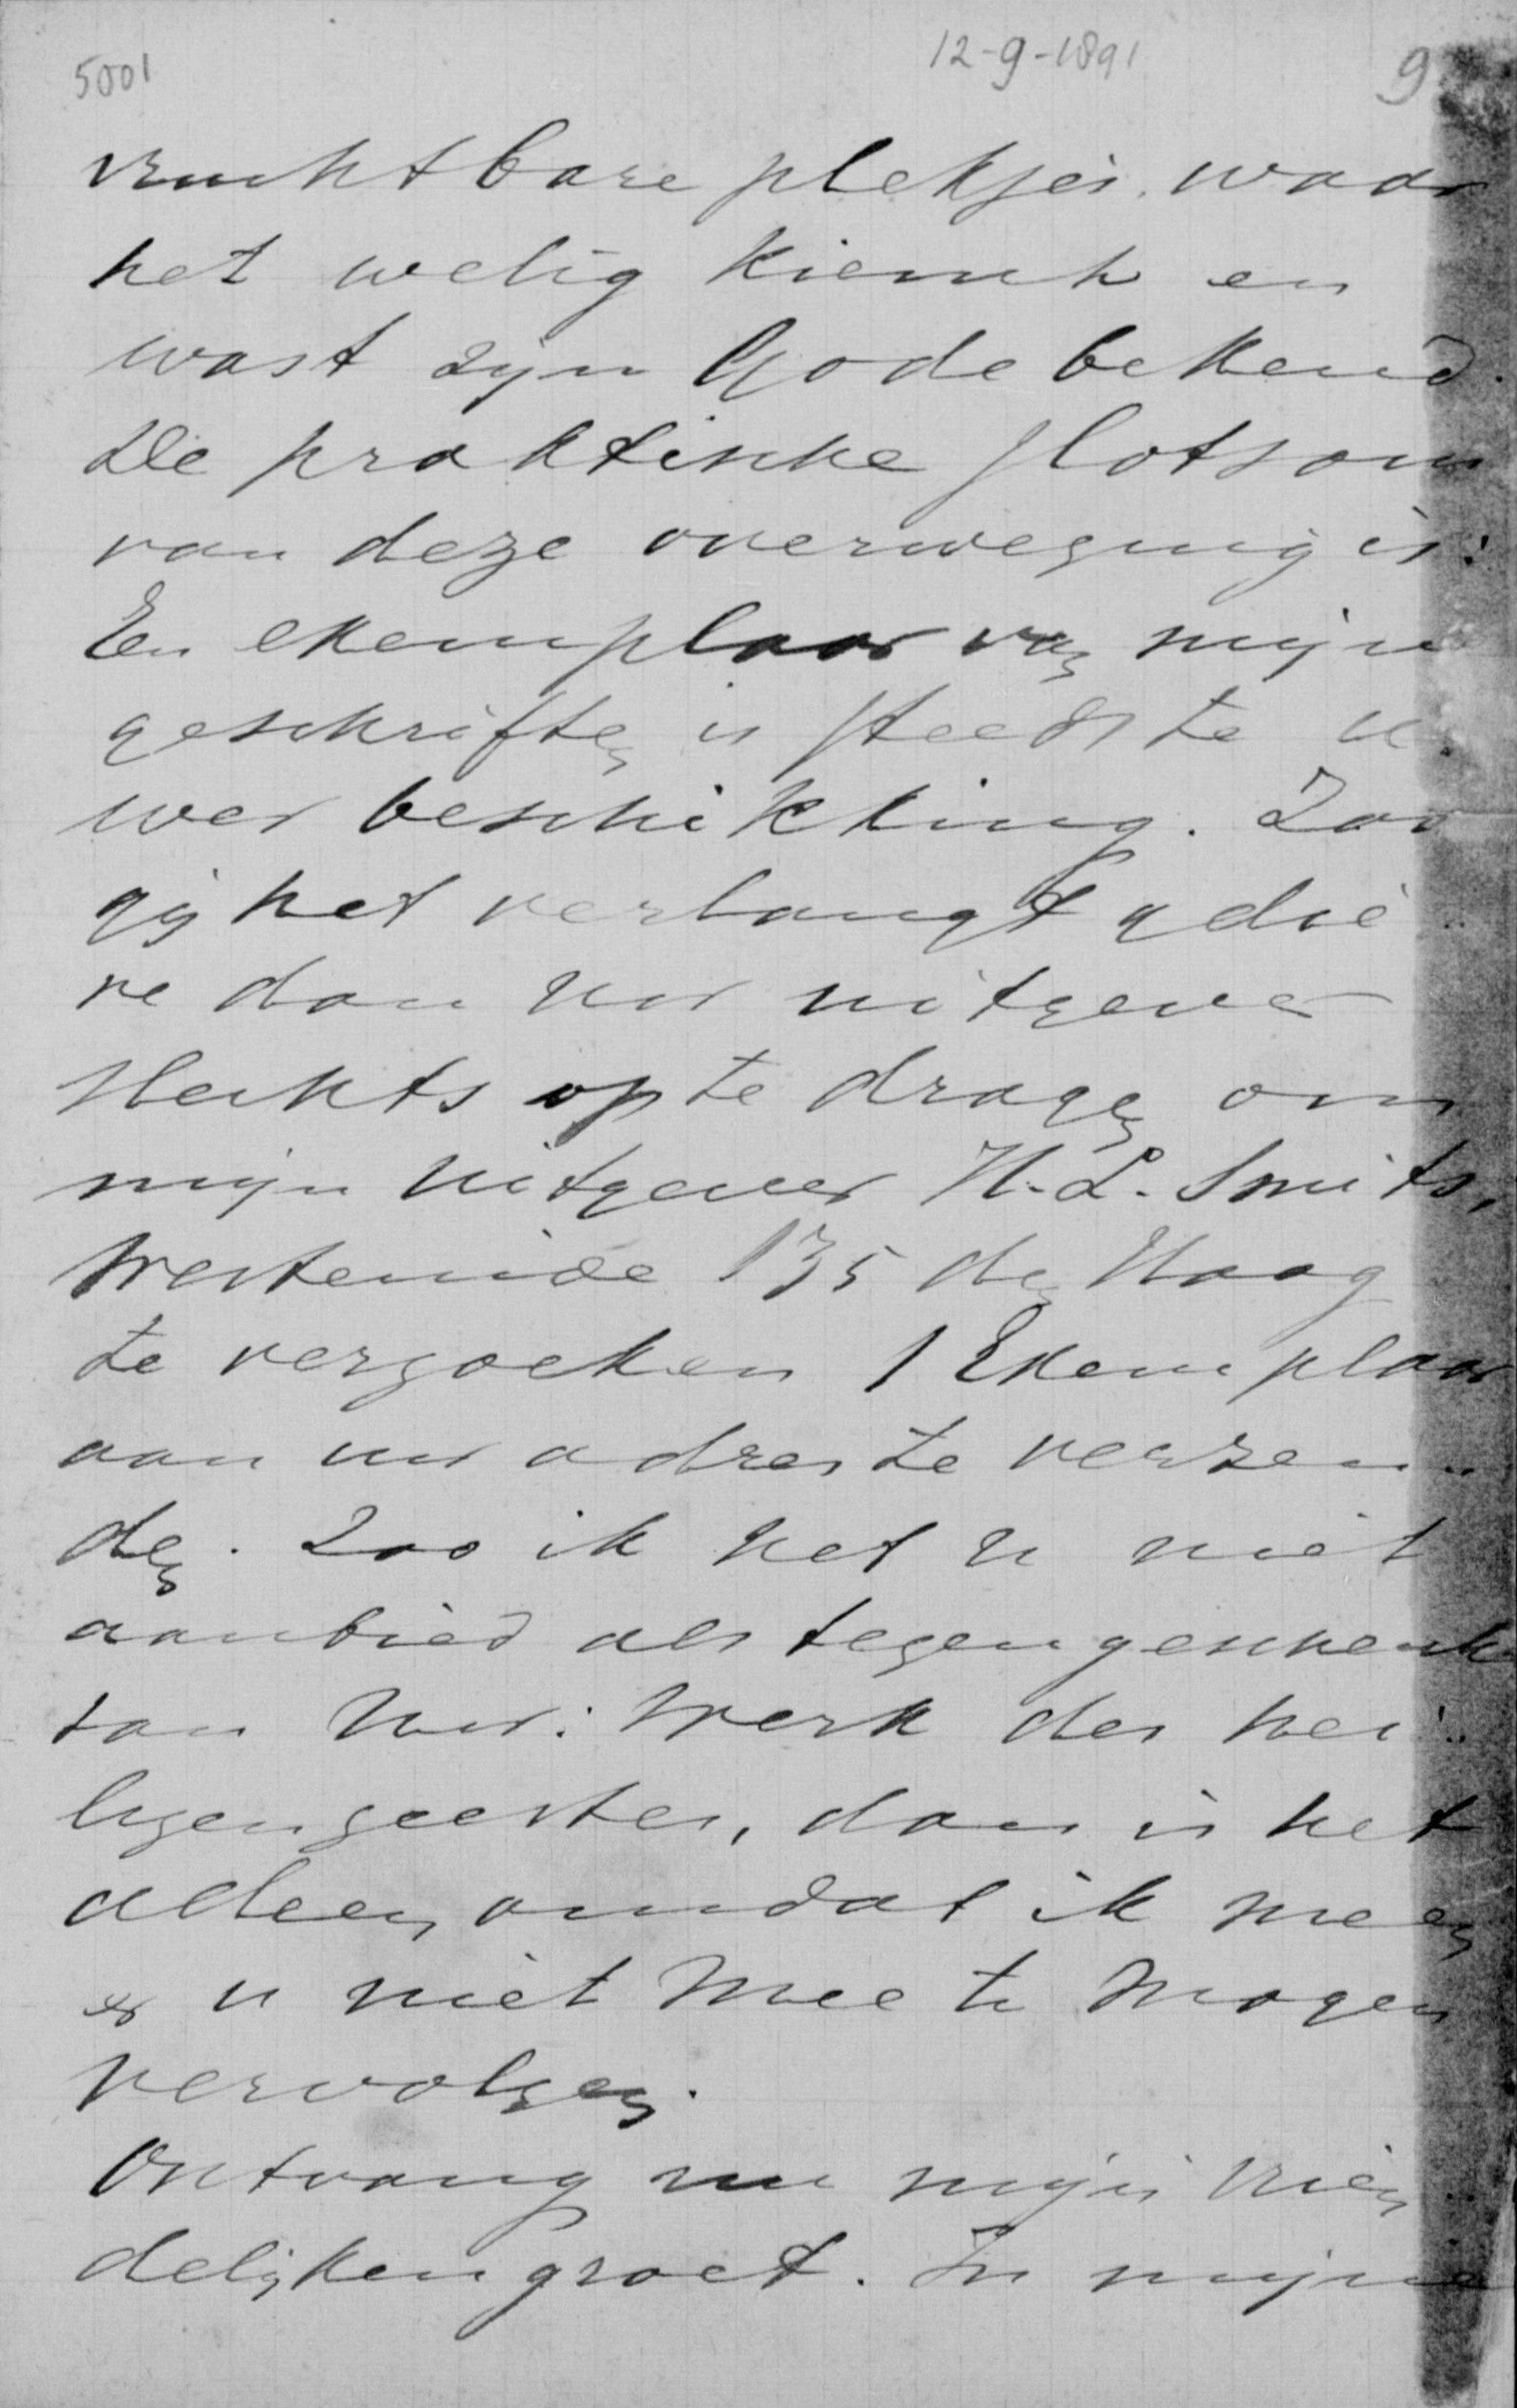 5001 12-9-1891 9
vruchtbare plekjes waar
het welig kiemt en
wast zijn Gode bekend.
De praktische slotsom
van deze overweging is:
Een exemplaar van mijn
geschriften is steeds te u-
wer beschikking. Zoo
gij het verlangt gelie-
ve dan uw uitgever
slechts op te dragen om
mijn uitgever H.L. Smits,
Westeinde 135 den Haag
te verzoeken 1 Exemplaar
aan uw adres te verzen-
den. Zoo ik het u niet
aanbied als tegengeschenk
van Uw: Werk des hei-
ligen geestes, dan is het
alleen omdat ik meen
er u niet mee te mogen
vervolgen.
Ontvang nu mijn vrien-
delijken groet. In mijne